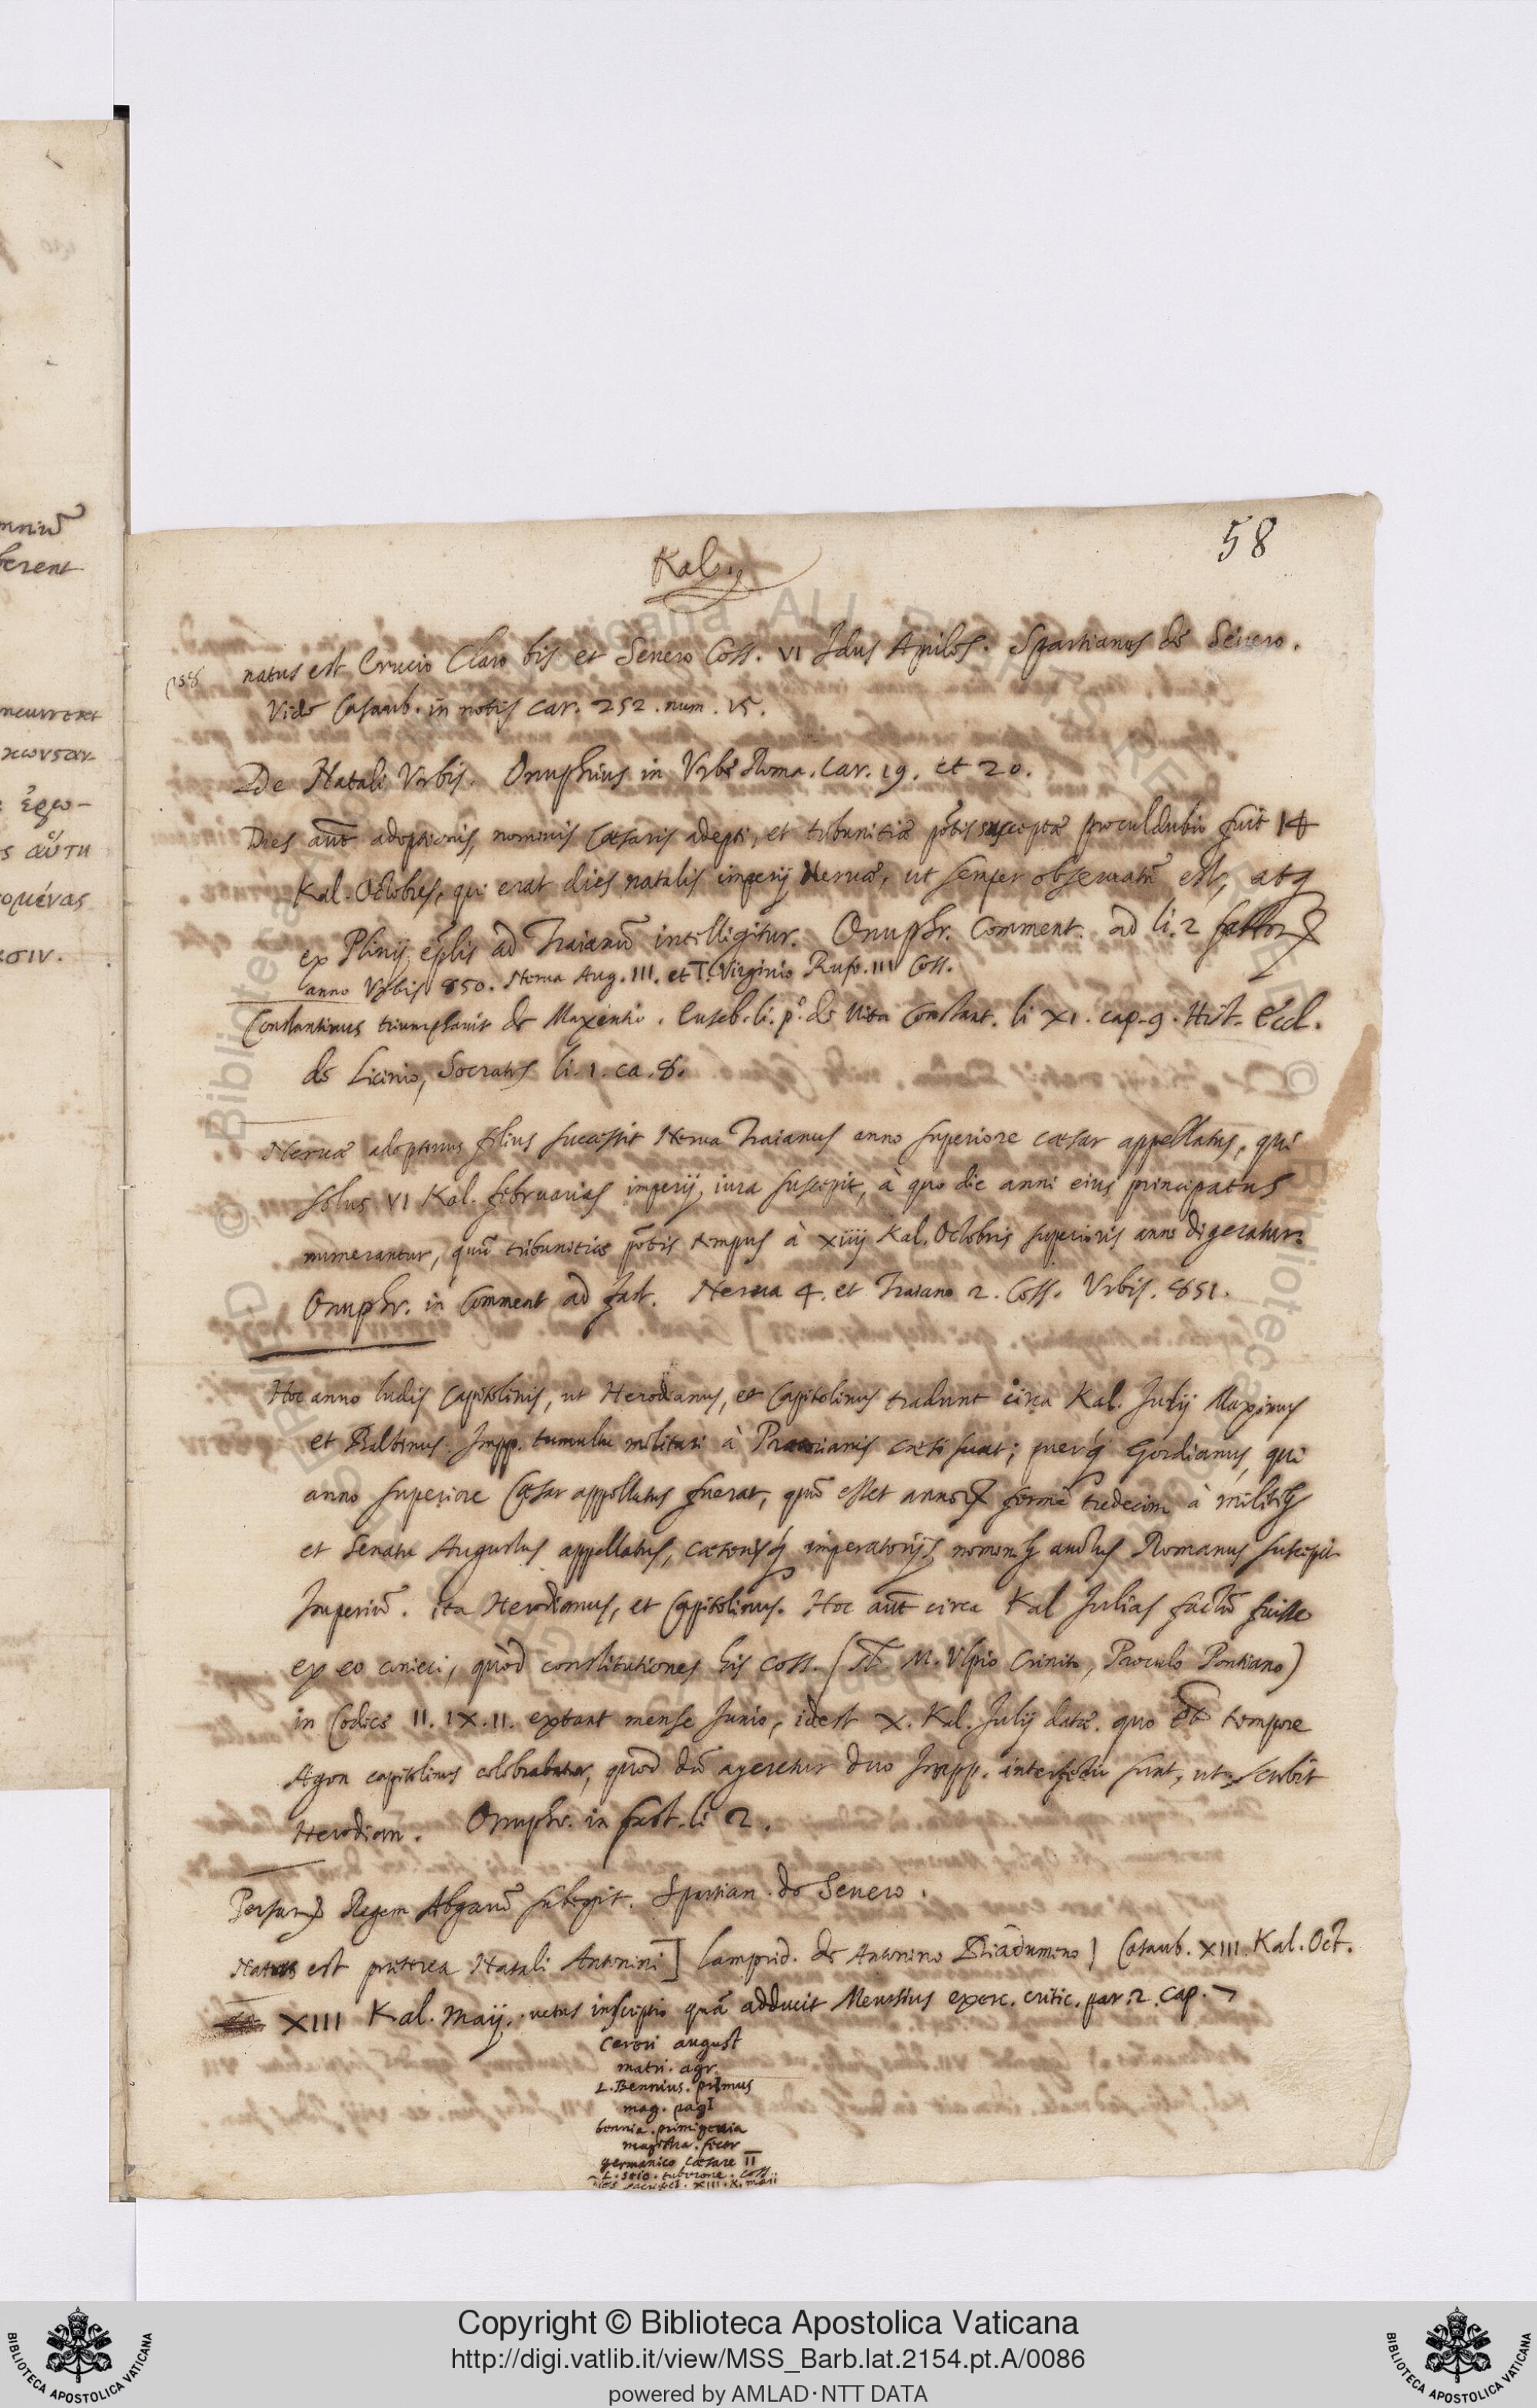 58
Kal.
natus est Erucio Claro bis et Seuero Coss. VI Idus Apriles. Spartianus de Seuero.
Vide Casaub. in notis car. 252. num. 15.
De Natali Vrbis. Onuphrius in Vrbe Roma. Car. 19. et 20.
Dies aut̃ adoptionis, nominis Cæsaris adepti, et tribunitiæ põtis susceptæ proculdubio fuit 14
Kal. Octobres, qui erat dies natalis imperij Neruæ, ut semper obseruatũ est, atq
ex Plinij ep̃lis ad Traianũ intelligitur. Onuphr. Comment. ad li. 2 fastorꝝ
anno Vrbis 850. Nerua Aug. III. et T. Virginio Rufo. III Coss.
Constantinus triumphauit de Maxentio. Euseb. li. p.º de Vita Constant. li XI. cap. 9. Hist. Eccl.
de Licinio, Socrates li. 1. ca. 8.
Neruæ adoptiuus filius successit Nerua Traianus anno superiore cæsar appellatus, qui
solus VI Kal. februarias imperij iura suscepit, à quo die anni eius principatus
numerantur, quũ tribunitiæ põtis tempus à xiiij Kal. Octobris superioris anno digeratur.
Onuphr. in Comment ad fast. Nerua 4. et Traiano 2. Coss. Vrbis. 851.
Hoc anno ludis Capitolinis, ut Herodianus, et Capitolinus tradunt circa Kal. Julij Maximus
et Balbinus Impp. tumultu militari à Prætorianis cæsi sunt; puerq́ Gordianus, qui
anno superiore Cæsar appellatus fuerat, quũ esset annorꝝ fermè tredecim à militibꝰ
et Senatu Augustus appellatus, cæterisq́ imperatorijs nominibꝰ auctus Romanus suscepit
Imperiũ. ita Herodianus, et Capitolinus. Hoc aut̃ circa Kal Julias factũ fuisse
ex eo conieci, quòd constitutiones his coss. (M. Vlpio Crinito, Proculo Pontiano)
in Codice II. IX. II. extant mense Junio, idest X. Kal. Julij datæ. quo tempore
Agon capitolinus celebrabatur, quod dũ ageretur duo Impp. interfecti sunt, ut scribit
Herodian. Onuphr. in fast. li 2.
Persarꝝ Regem Abgarũ subegit. Spartian. de Seuero.
Natus est præterea Natali Antonini] Lamprid. de Antonino Diadumeno] Casaub. XIII. Kal. Oct.
XIII Kal. Maij. uetus inscriptio quã adducit Meursius exerc. critic. par. 2. cap. 7
cereri august
matri. agr.
L. Bennius. primus
mag. pagI
bennia. primigenia
magistra. fecer
germanico cæsare II
L. seio. tuberone. coss.
XIII. K. maii
Copyright © Biblioteca Apostolica Vaticana
http://digi.vatlib.it/view/MSS_Barb.lat.2154.pt.A/0086
powered by AMLAD·NTT DATA
BIBLIOTECA APOSTOLICA VATICANA
BIBLIOTECA APOSTOLICA VATICANA